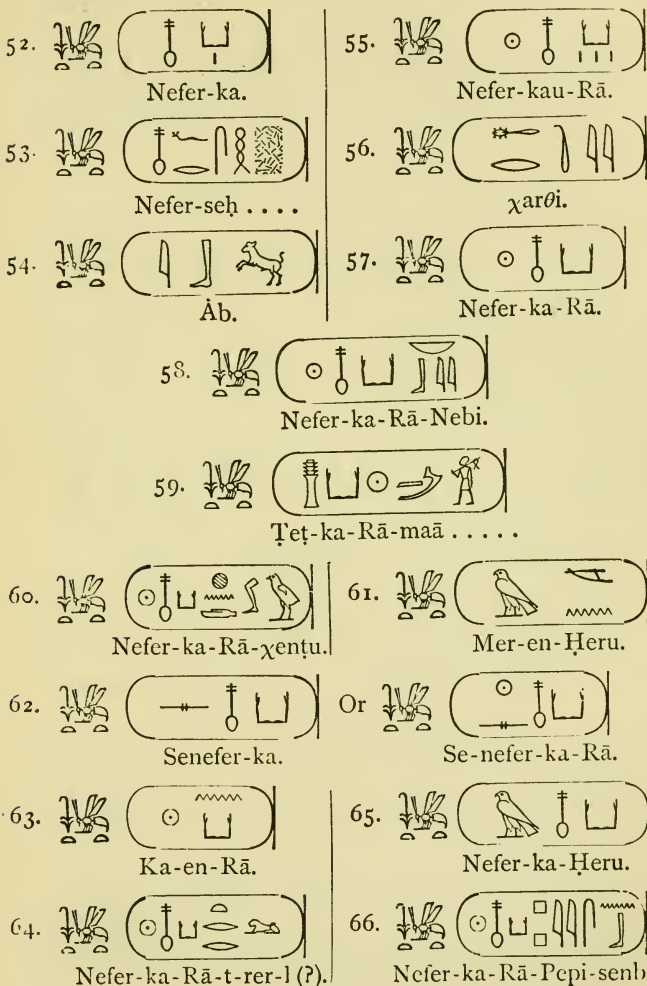 52. Nefer-ka.
53. Nefer-seḥ . . . .
54. Ȧb.
55. Nefer-kau-Rā.
56. χarθi.
57. Nefer-ka-Rā.
58. Nefer-ka-Rā-Nebi.
59. Ṭeṭ-ka-Rā-maā . . . . .
60. Nefer-ka-Rā-χenṭu.
61. Mer-en-Ḥeru.
62. Senefer-ka. Or Se-nefer-ka-Rā.
63. Ka-en-Rā.
64. Nefer-ka-Rā-t-rer-l (?).
65. Nefer-ka-Ḥeru.
66. Nefer-ka-Rā-Pepi-senb